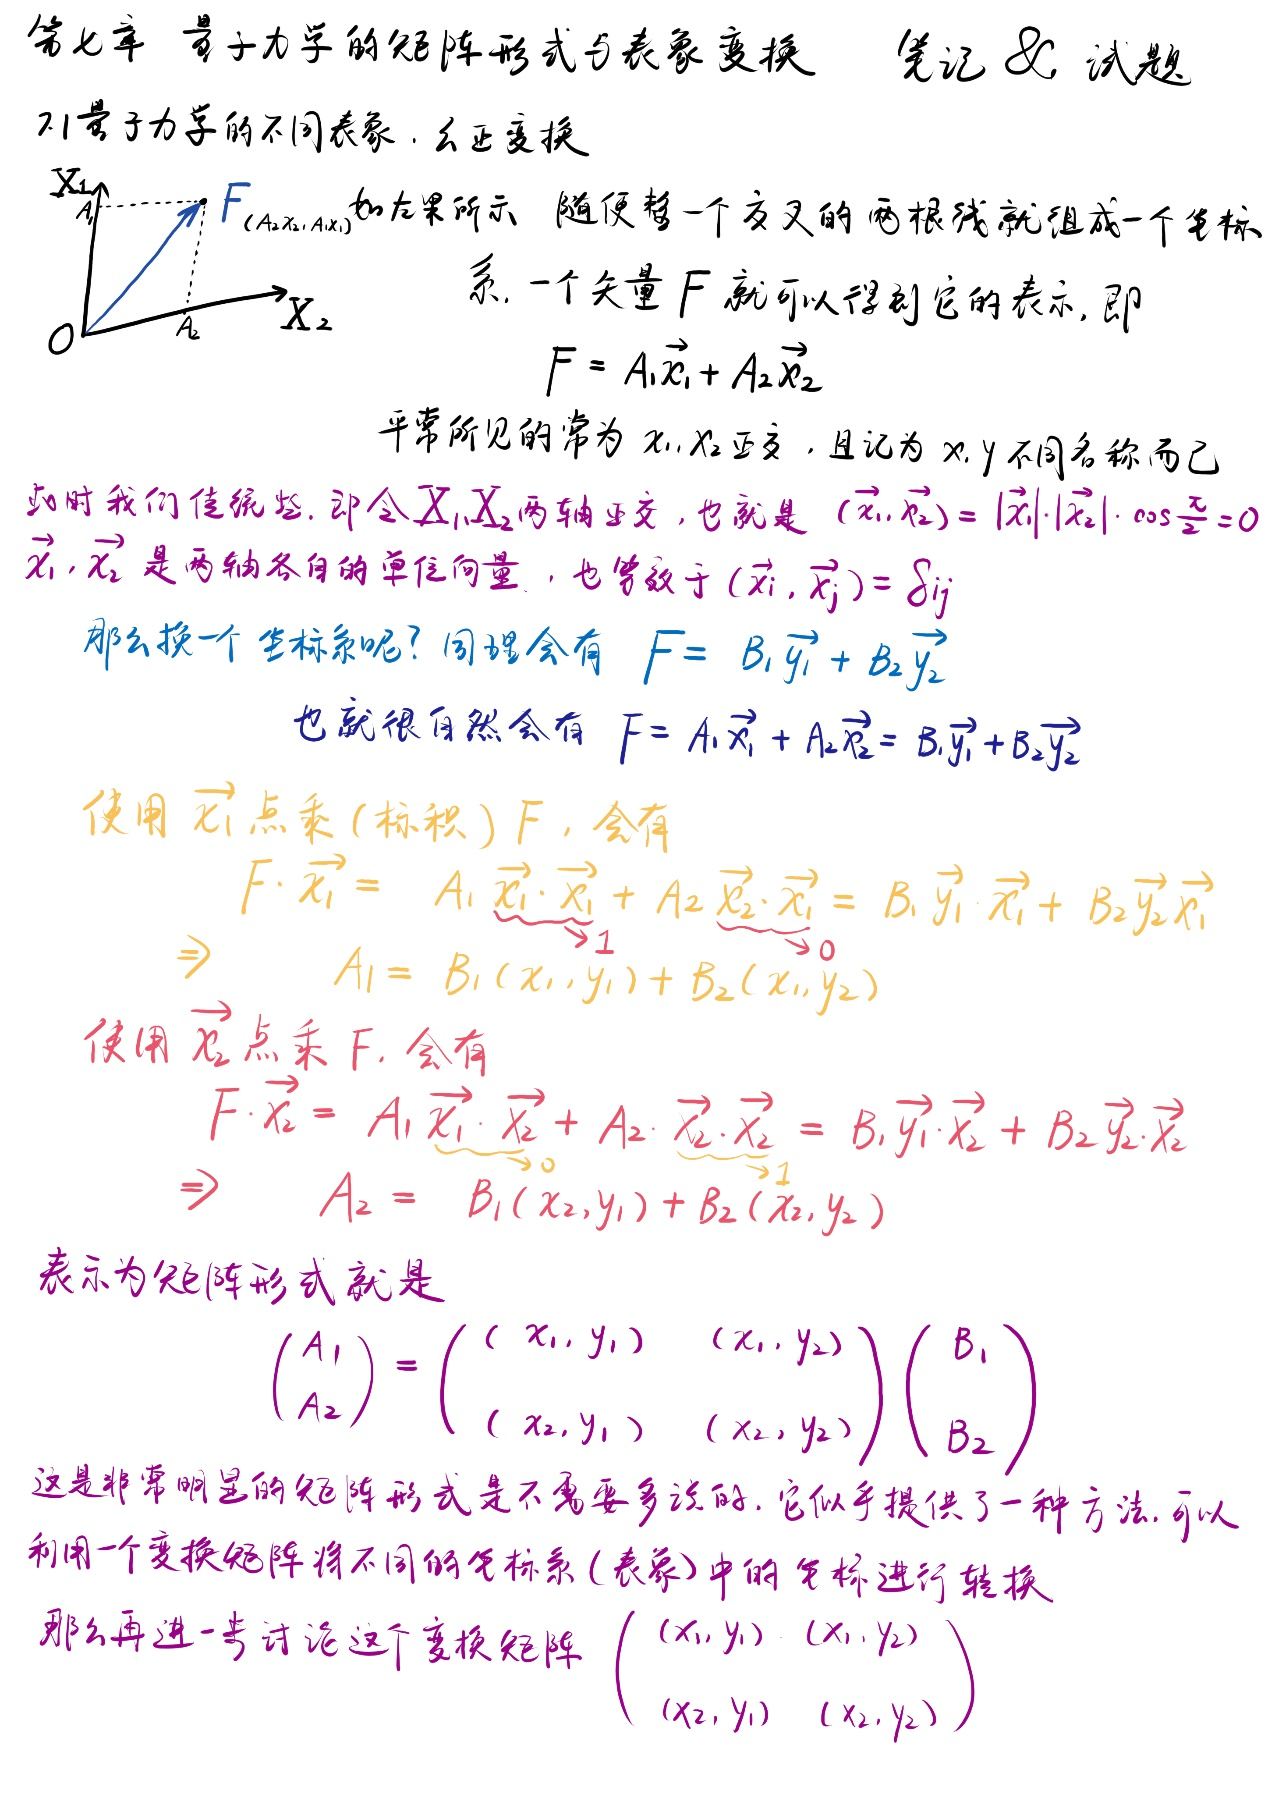 第七章 量子力学的矩阵形式与表象变换 笔记 & 试题
7.1 量子力学的不同表象,幺正变换
X₁
A₁
F(A₂x₂, A₁x₁)
O
A₂
X₂
如左果所示 随便整一个交叉的两根线就组成一个坐标
系,一个矢量F就可以得到它的表示,即
F = A₁x⃗₁ + A₂x⃗₂
平常所见的常为 x₁, x₂ 正交,且记为 x, y 不同名称而已
此时我们传统些,即令X₁,X₂两轴正交,也就是 (x⃗₁, x⃗₂) = |x⃗₁|·|x⃗₂|·cos π/2 = 0
x⃗₁, x⃗₂ 是两轴各自的单位向量,也等效于 (x⃗i, x⃗j) = δij
那么换一个坐标系呢?同理会有 F = B₁y⃗₁ + B₂y⃗₂
也就很自然会有 F = A₁x⃗₁ + A₂x⃗₂ = B₁y⃗₁ + B₂y⃗₂
使用 x⃗₁ 点乘(标积)F,会有
F·x⃗₁ = A₁ x⃗₁·x⃗₁ + A₂ x⃗₂·x⃗₁ = B₁ y⃗₁·x⃗₁ + B₂ y⃗₂ x⃗₁
→ 1 → 0
⇒ A₁ = B₁(x₁, y₁) + B₂(x₁, y₂)
使用 x⃗₂ 点乘 F,会有
F·x⃗₂ = A₁ x⃗₁·x⃗₂ + A₂· x⃗₂·x⃗₂ = B₁ y⃗₁·x⃗₂ + B₂ y⃗₂·x⃗₂
→ 0 → 1
⇒ A₂ = B₁(x₂, y₁) + B₂(x₂, y₂)
表示为矩阵形式就是
(A₁) = ((x₁, y₁) (x₁, y₂)) (B₁)
(A₂) ((x₂, y₁) (x₂, y₂)) (B₂)
这是非常明显的矩阵形式是不需要多说的,它似乎提供了一种方法,可以
利用一个变换矩阵将不同的坐标系(表象)中的坐标进行转换
那么再进一步讨论这个变换矩阵 ((x₁, y₁) (x₁, y₂))
((x₂, y₁) (x₂, y₂))